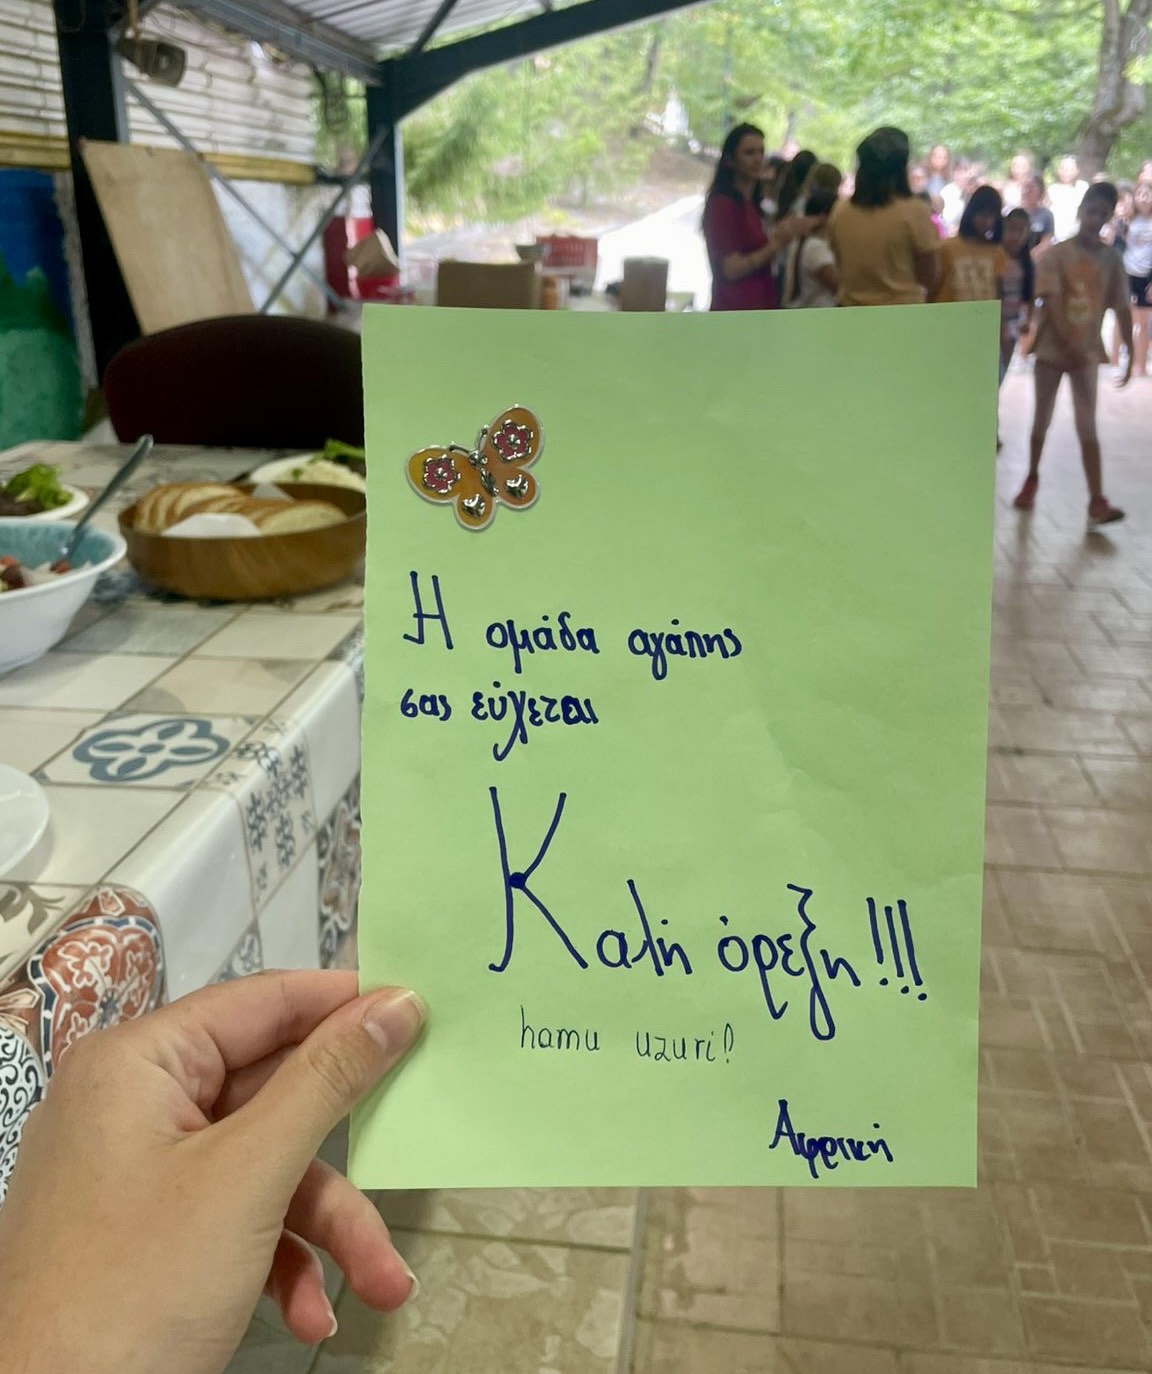 Η ομάδα αγάπης
σας εύχεται
Καλή όρεξη!!!
hamu uzuri!
Αφρική